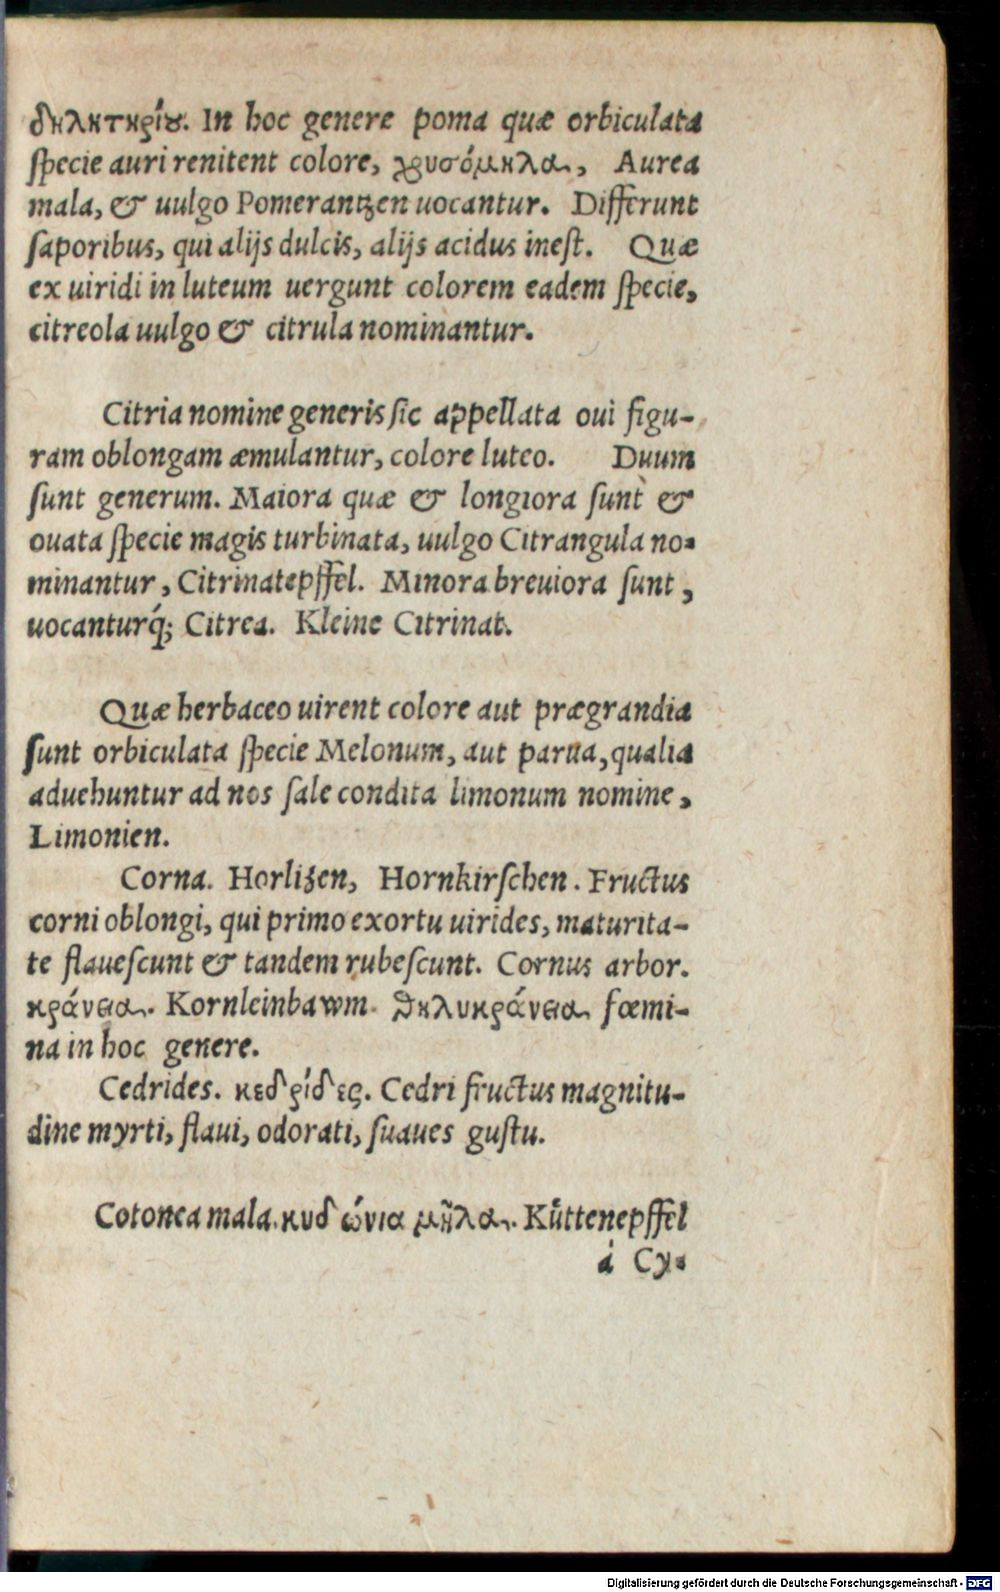 δηλητηρίȣ. In hoc genere poma quæ orbiculata
ſpecie auri renitent colore, χρυσόμηλα, Aurea
mala, & uulgo Pomerantzen uocantur. Differunt
ſaporibus, qui alijs dulcis, alijs acidus ineſt. Quæ
ex uiridi in luteum uergunt colorem eadem ſpecie,
citreola uulgo & citrula nominantur.
Citria nomine generis ſic appellata oui figu-
ram oblongam æmulantur, colore luteo. Duum
ſunt generum. Maiora quæ & longiora ſunt &
ouata ſpecie magis turbinata, uulgo Citrangula no-
minantur, Citrinatepffel. Minora breuiora ſunt,
uocanturq́; Citrea. Kleine Citrinat.
Quæ herbaceo uirent colore aut prægrandia
ſunt orbiculata ſpecie Melonum, aut parua, qualia
aduehuntur ad nos ſale condita limonum nomine,
Limonien.
Corna. Horlitzen, Hornkirſchen. Fructus
corni oblongi, qui primo exortu uirides, maturita-
te flaueſcunt & tandem rubeſcunt. Cornus arbor.
κράνεια. Kornleinbawm. θηλυκράνεια fœmi-
na in hoc genere.
Cedrides. κεδρίδες. Cedri fructus magnitu-
dine myrti, flaui, odorati, ſuaues guſtu.
Cotonea mala. κυδώνια μῆλα. Kůttenepffel
á Cy-
Digitalisierung gefördert durch die Deutsche Forschungsgemeinschaft - DFG